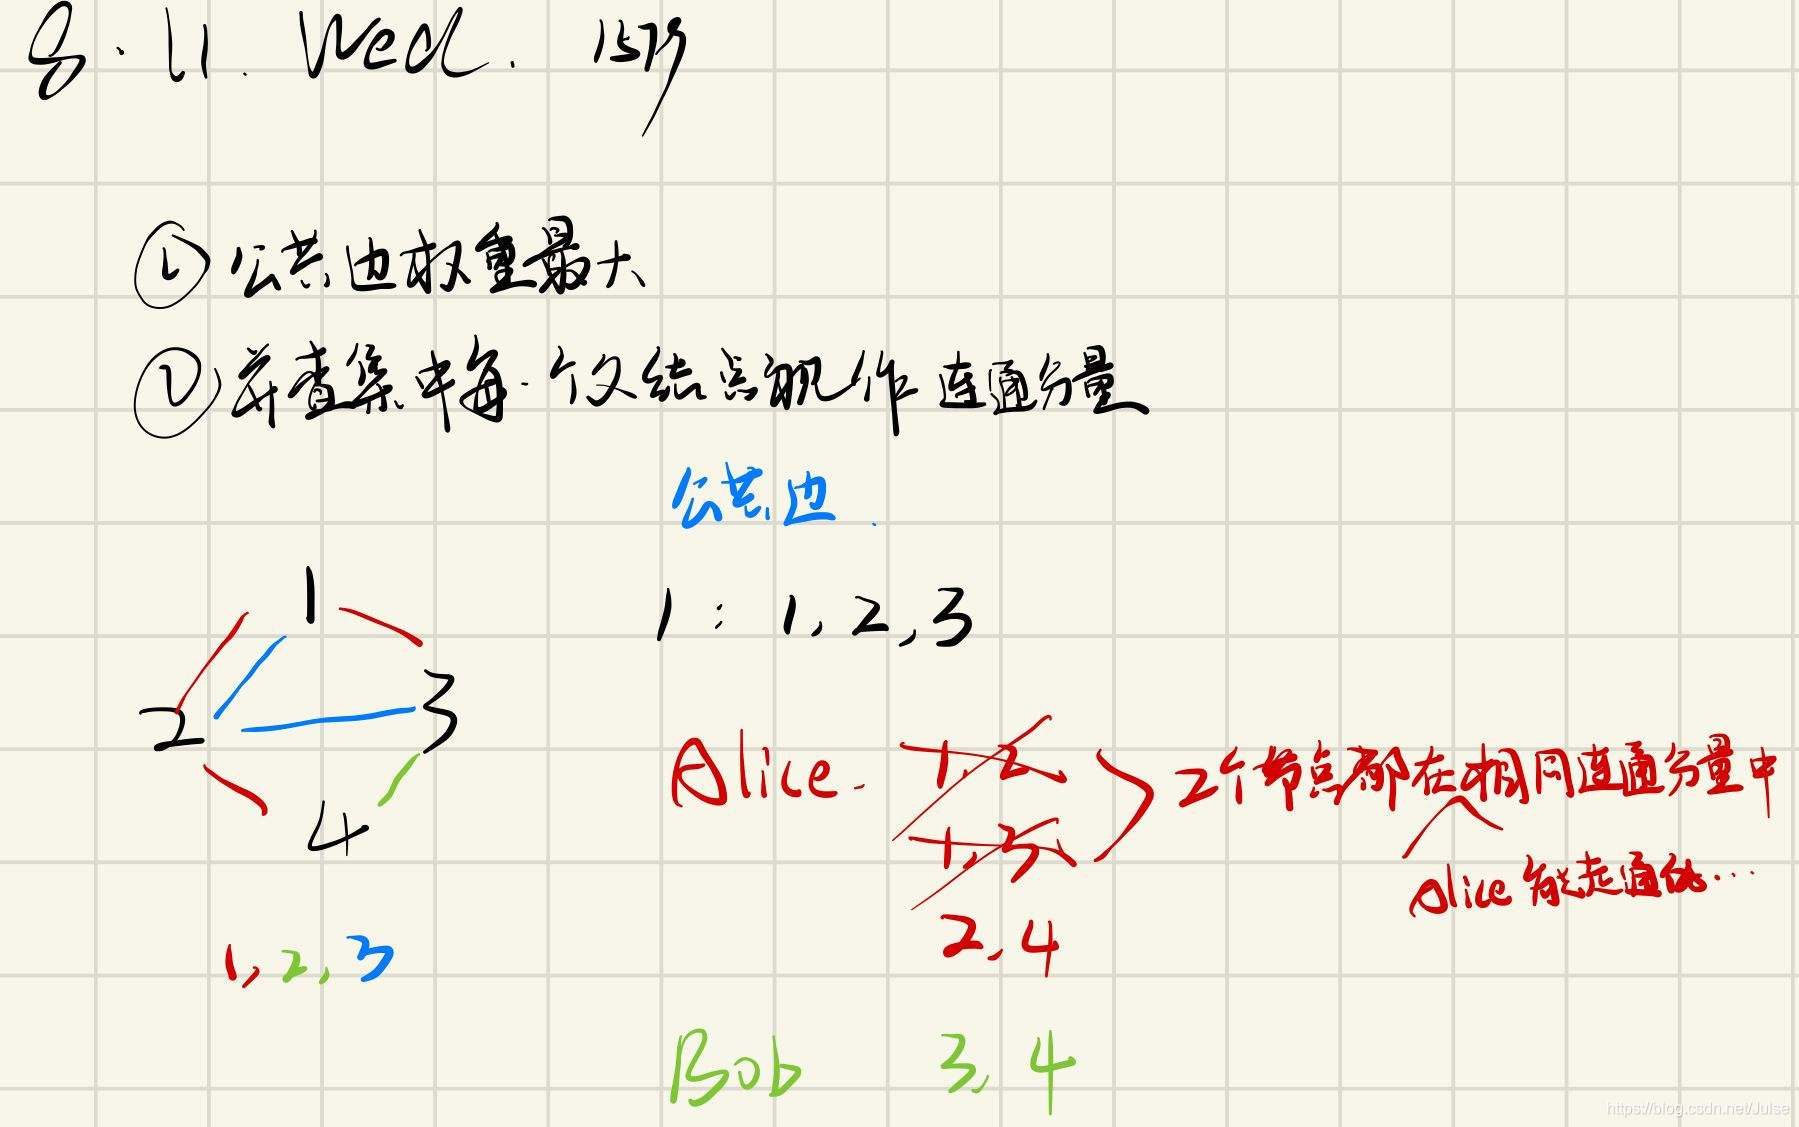 8.11. Wed. 1579
① 公共边权重最大
② 并查集中每个仅结点视作连通分量
公共边.
1
2
3
4
1,2,3
1: 1,2,3
Alice. 1,2
1,3
2,4
2个节点都在相同连通分量中
Alice能走通的...
Bob 3,4
https://blog.csdn.net/Julse